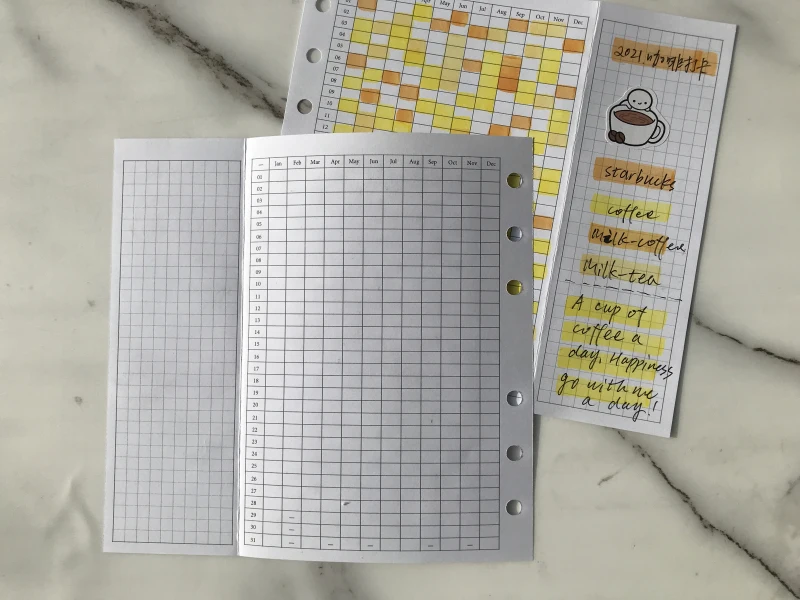 Apr May Jun Jul Aug Sep Oct Nov Dec
02
03
04
05
06
07
08
09
10
11
12
2021咖啡打卡
starbucks
coffee
Milk-coffee
Milk-tea
A cup of
coffee a
day. Happiness
go with me
a day!
— Jan Feb Mar Apr May Jun Jul Aug Sep Oct Nov Dec
01
02
03
04
05
06
07
08
09
10
11
12
13
14
15
16
17
18
19
20
21
22
23
24
25
26
27
28
29 —
30 —
31 — — — — —